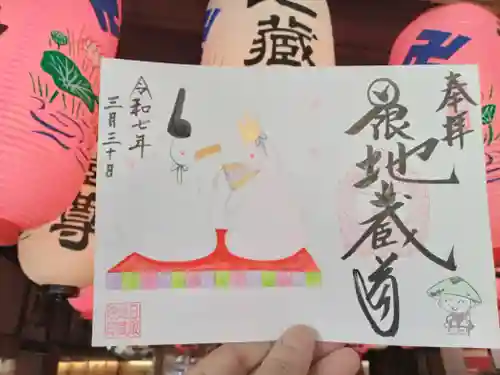 奉拝
地蔵尊
令和七年
三月三十日
蔵
尊